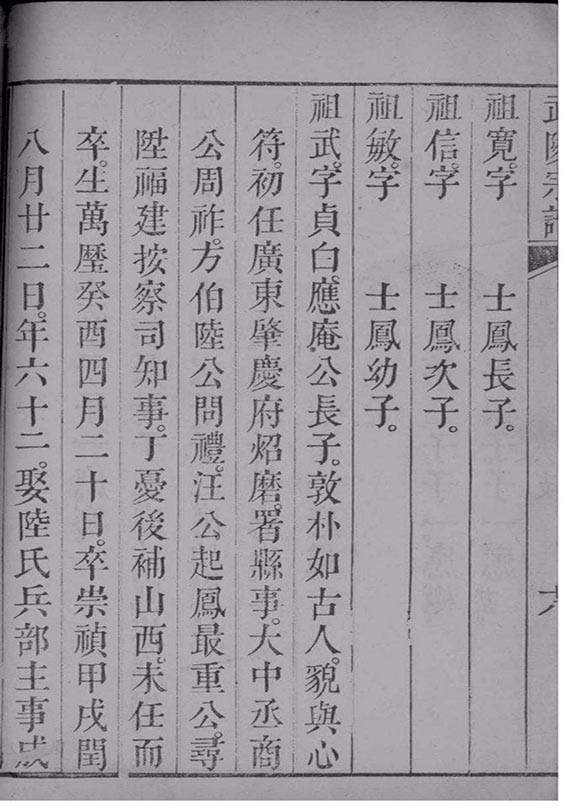 武陵宗譜
六
祖寬。字　　士鳳長子。
祖信。字　　士鳳次子。
祖敏。字　　士鳳幼子。
祖武。字貞白。應庵公長子。敦朴如古人。貌與心
符。初任廣東肇慶府炤磨。署縣事。大中丞商
公周祚。方伯陸公問禮。汪公起鳳最重公。尋
陞福建按察司知事。丁憂後補山西。未任而
卒。生萬曆癸酉四月二十日。卒崇禎甲戌閏
八月廿二日。年六十二。娶陸氏兵部主事成